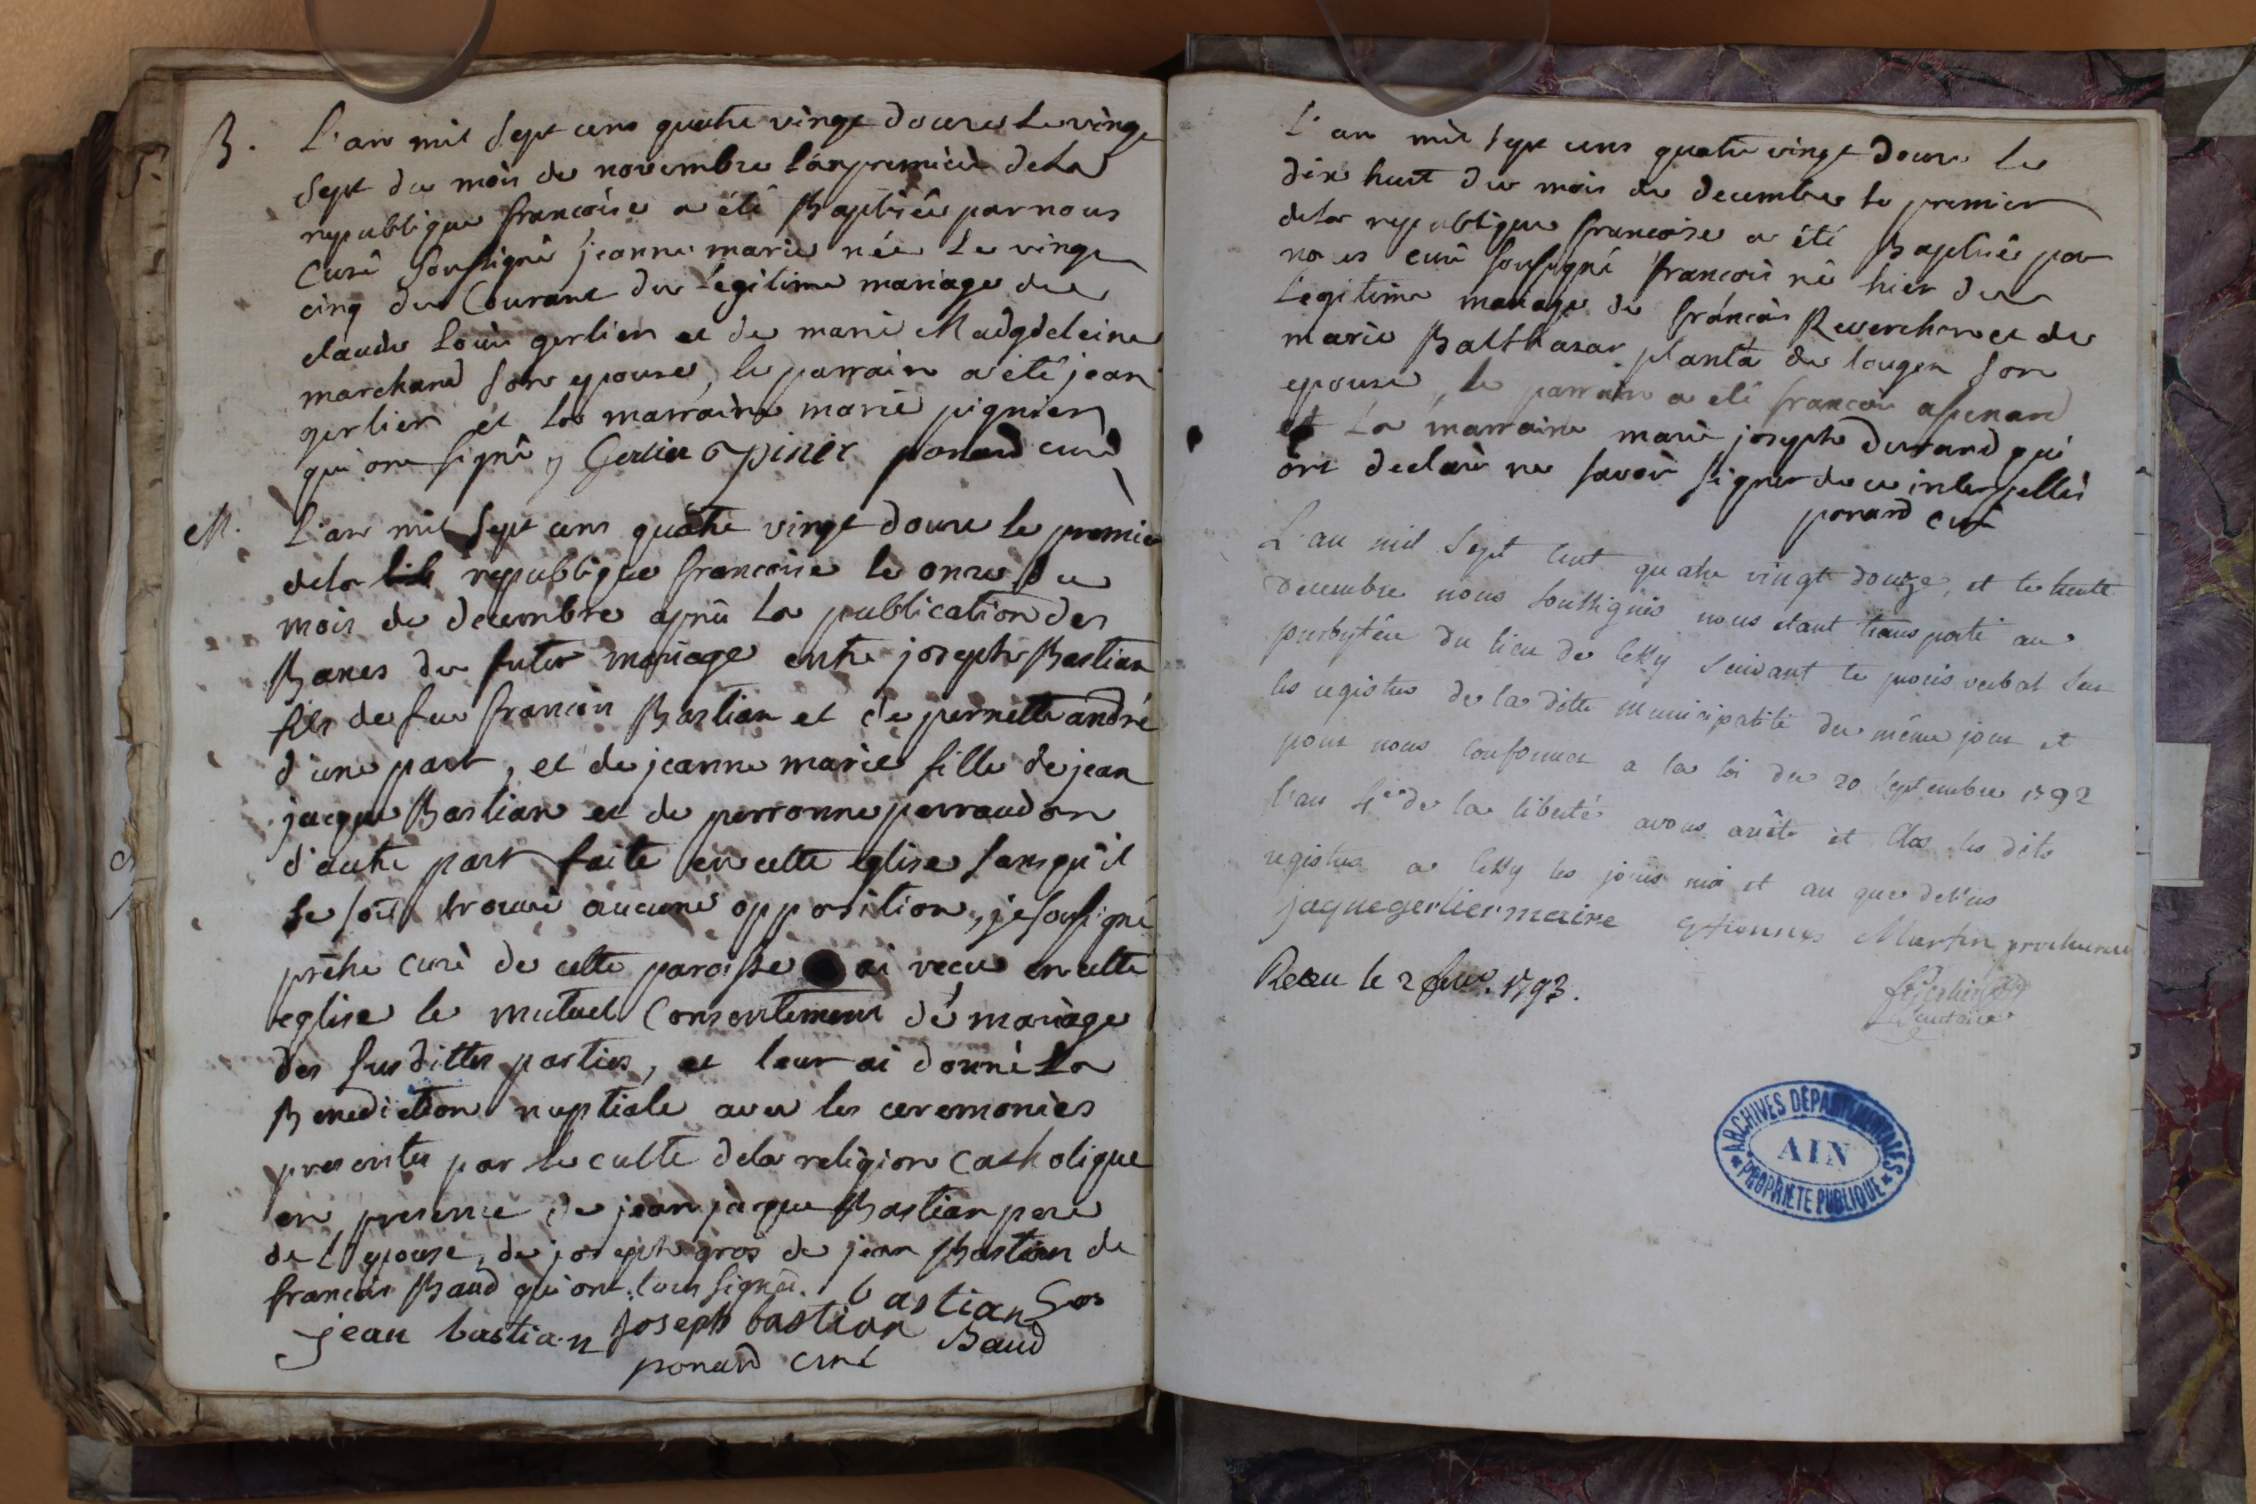 B.
L'an mil sept cens quatre vingt douze le vingt
sept du mois de novembre l'an premier dela
republique françoise a été Baptisée par nous
Curé soussigné jeanne marie née le vingt
cinq du Courant du Legitime mariage de
claude Louis gerlier et de marie Madgdeleine
marchand son epouse, le parrain a été jean
gerlier et la marraine marie pignier
qui ont signé, Gerlier pinier ponard curé
M.
L'an mil sept cens quatre vingt douze le premier
dela republique françoise le onze du
mois de decembre après la publication des
Bancs du futur mariage entre joseph Bastian
fils de feu francois Bastian et de pernette andré
d'une part, et de jeanne marie fille de jean
jacque Bastian et de perronne perraudon
d'autre part faite en cette eglise sans qu'il
se soit trouvé aucune opposition, je soussigné
prêtre curé de cette paroisse ai recu en cette
eglise le mutuel Consentement de mariage
des susdittes parties, et leur ai donné la
Benediction nuptiale avec les ceremonies
prescrites par le culte dela religion Catholique
en presence de jean jacque Bastian pere
de l'epouse, de joseph gros de jean Bastian de
francois Baud qui ont tous signés. bastian Gros
jean bastian joseph bastian Baud
ponard curé
L'an mil sept cens quatre vingt douze le
dix huit du mois de decembre le premier
dela republique francoise a été Baptisé par
nous curé soussigné francois né hier du
Legitime mariage de francois Reverchon et de
marie Balthazar planta de son
epouse, le parrain a été francois
et la marraine marie joseph durand qui
ont declaré ne savoir signer de ce interpellés
ponard curé
L'an mil sept cent quatre vingt douze, et le trente
decembre nous soussignés nous etant transporté au
presbytére du lieu de Cessy suivant le procès verbal sur
les registres de la ditte municipalité du même jour et
pour nous conformer a la loi du 20 septembre 1792
l'an 4e de la liberté avons arrêté et clos les dits
registres a Cessy les jours mois et an que dessus
jaquegerlier maire Martin procureur
gerlier
Secretaire
Recu le 2 1793.
ARCHIVES DÉPARTEMENTALES
AIN
PROPRIÉTÉ PUBLIQUE